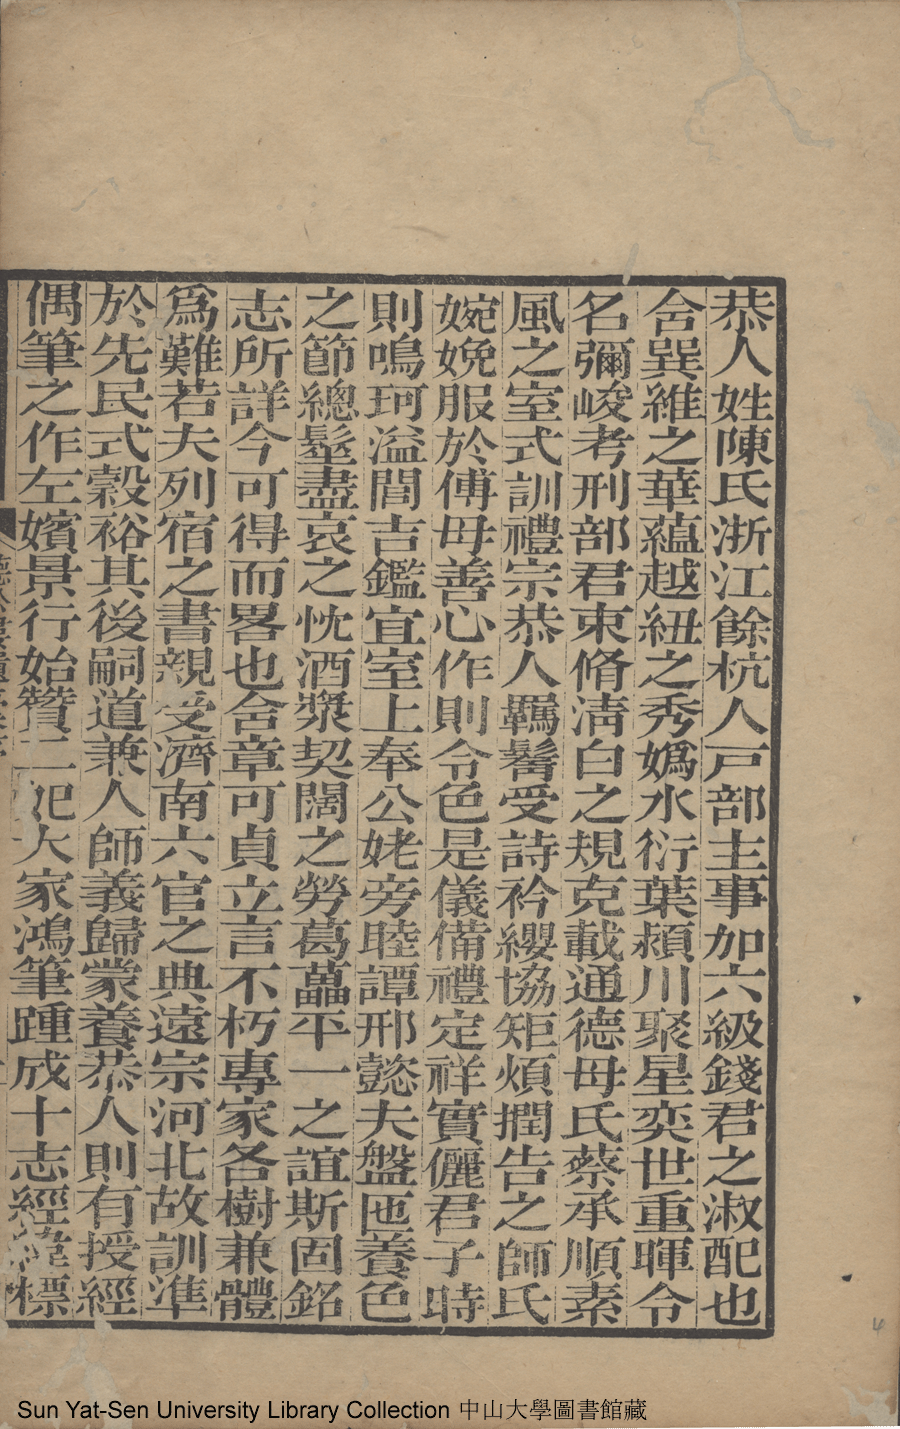 恭人姓陳氏浙江餘杭人戸部主事加六級錢君之淑配也
含巽維之華蘊越紐之秀嬀水衍葉潁川聚星奕世重暉令
名彌峻考刑部君束脩淸白之規克載通德母氏蔡承順素
風之室式訓禮宗恭人羈髫受詩衿纓協矩煩撋告之師氏
婉娩服於傅母善心作則令色是儀備禮定祥實儷君子時
則鳴珂溢閭吉鑑宜室上奉公姥旁睦譚邢懿夫盤匜養色
之節總髽盡哀之忱酒漿契闊之勞葛藟平一之誼斯固銘
志所詳今可得而畧也含章可貞立言不朽專家各樹兼體
爲難若夫列宿之書親受濟南六官之典遠宗河北故訓準
於先民式穀裕其後嗣道兼人師義歸蒙養恭人則有授經
偶筆之作左嬪景行始贊二妃大家鴻筆踵成十志經緯標
Sun Yat-Sen University Library Collection 中山大學圖書館藏